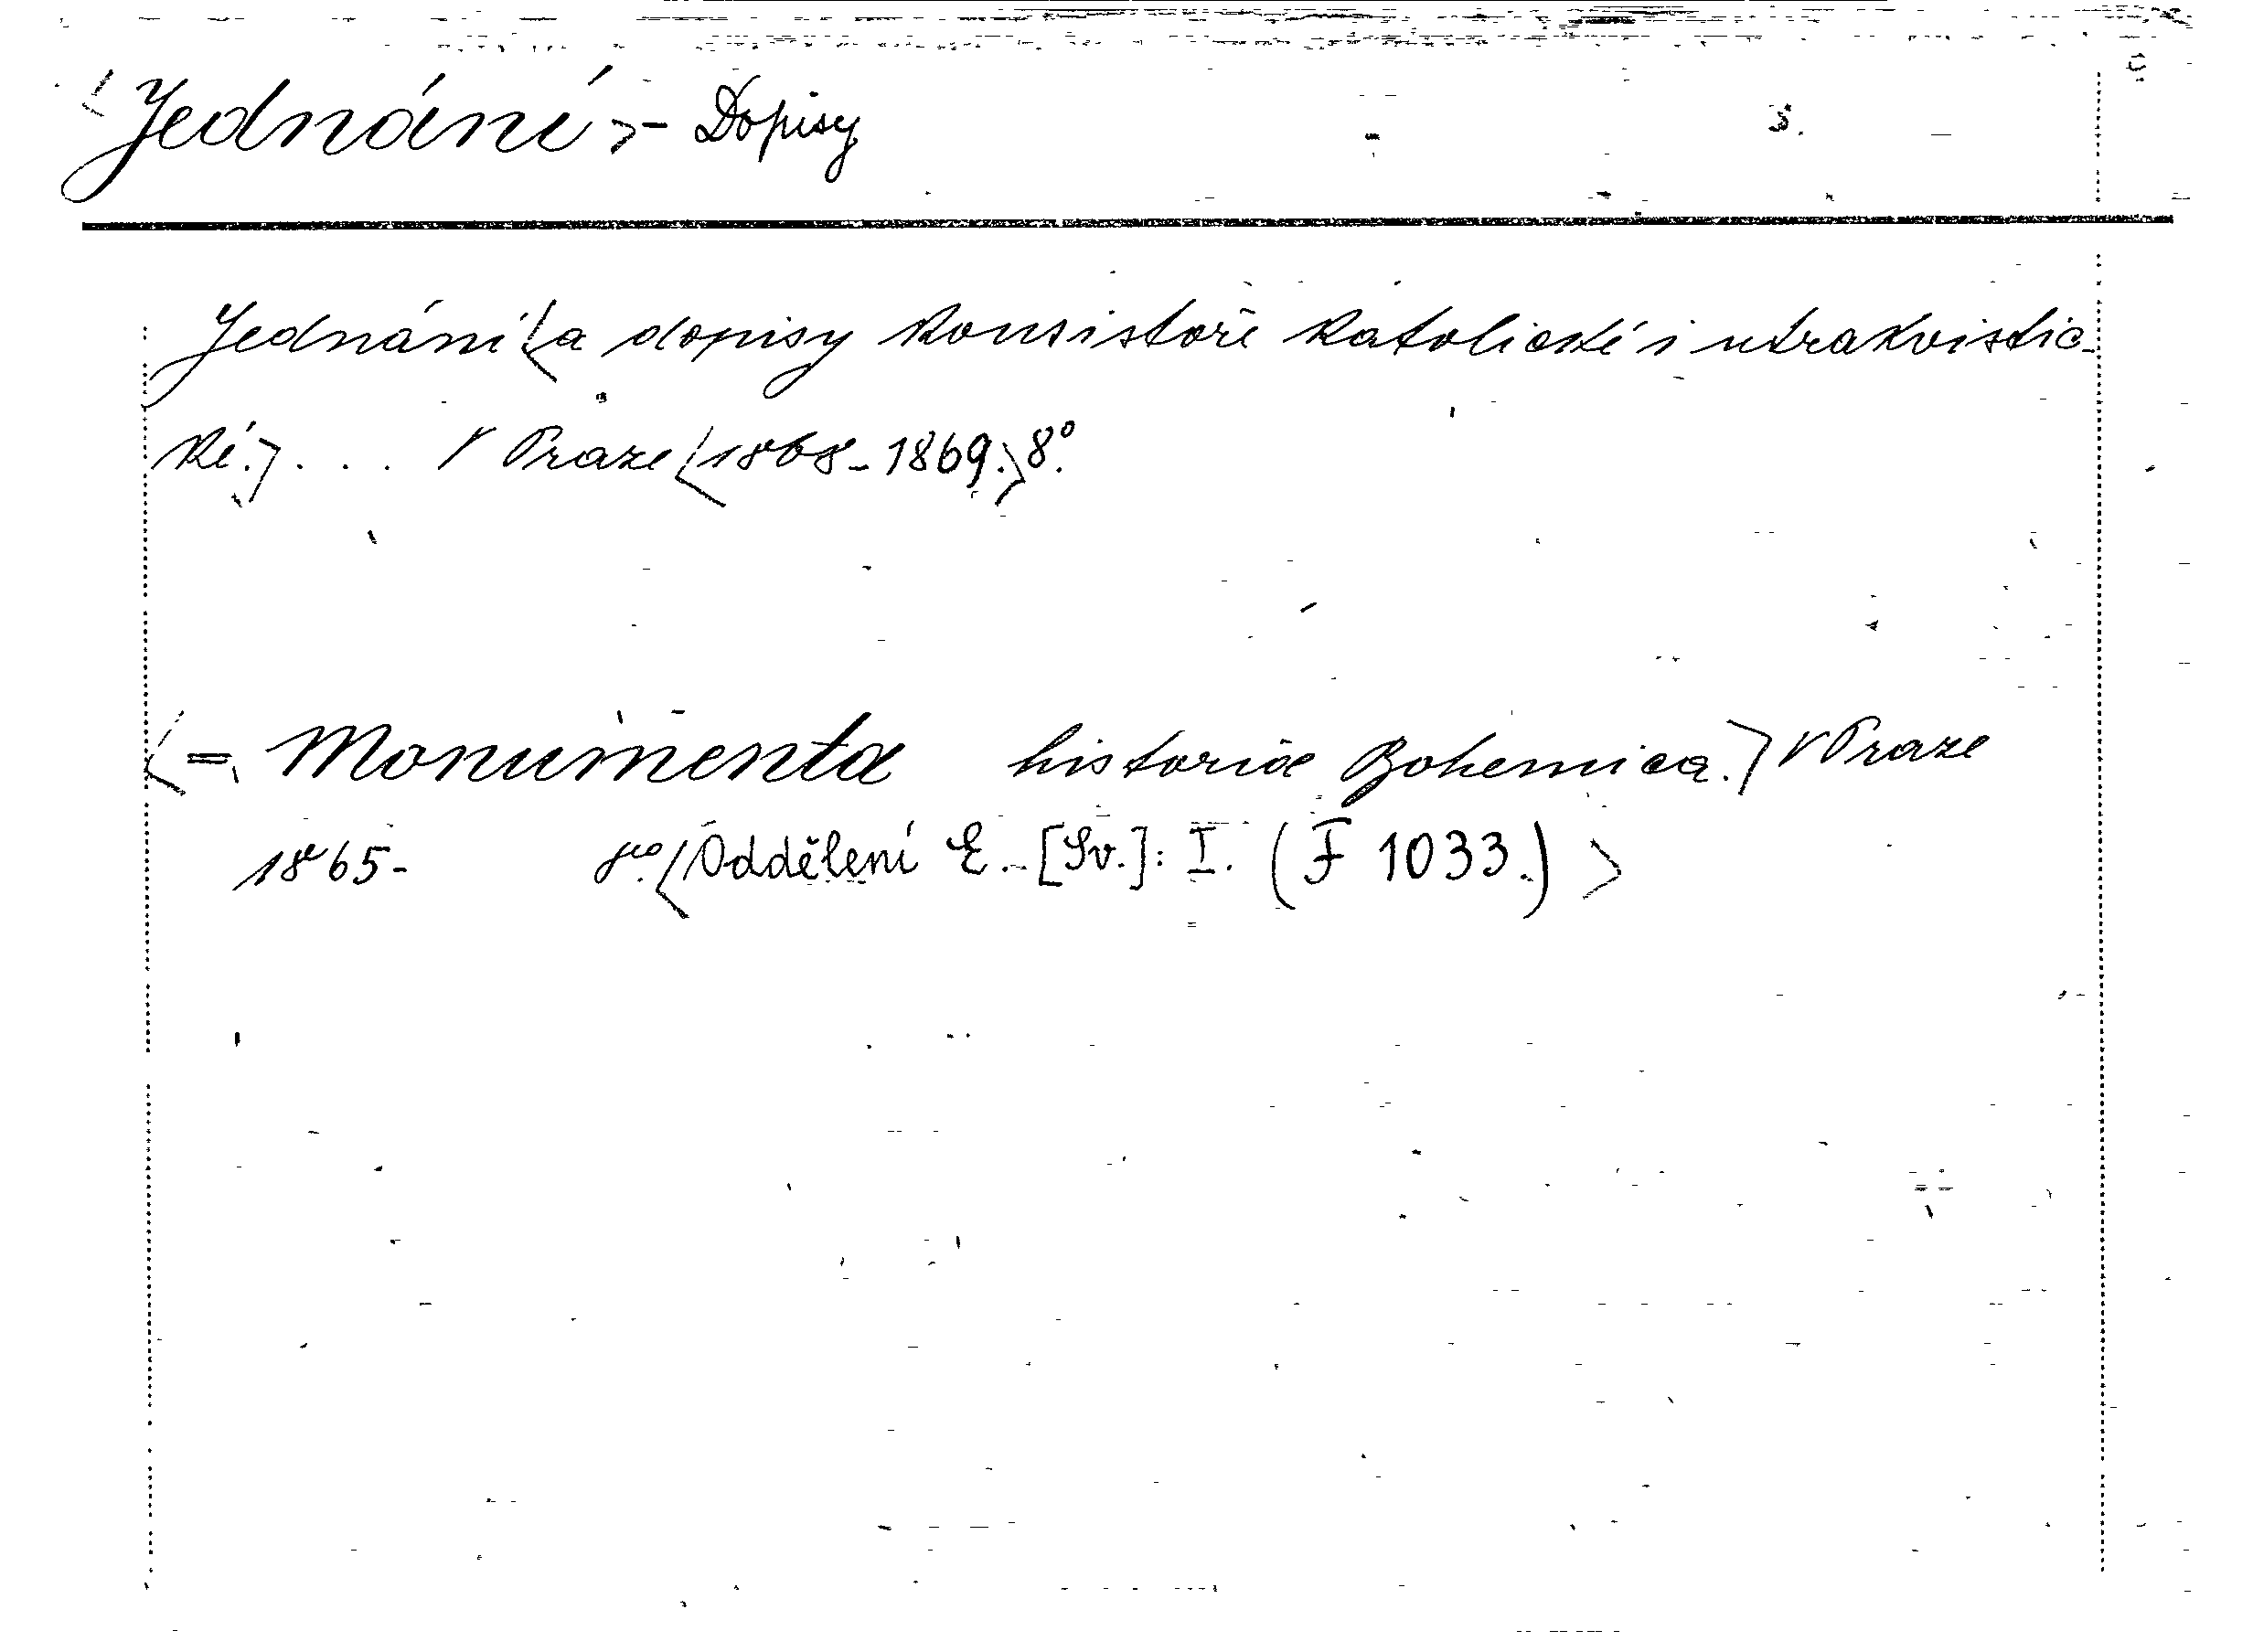 <Jednání>- Dopisy
Jednání <a dopisy konsistoře katolické i utrakvistic-
ké.> . . . V Praze <1868-1869.> 8°.
<= Monumenta historiae Bohemica.> V Praze
1865- 8vo. <Oddělení E. - [Sv.]: I. (F 1033.)>